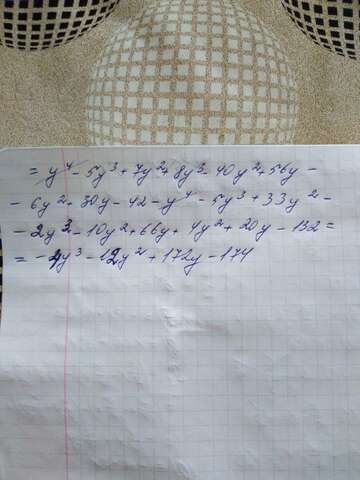 = y⁴ - 5y³ + 7y² + 8y³ - 40y² + 56y -
- 6y² + 30y - 42 - y⁴ - 5y³ + 33y² -
- 2y³ - 10y² + 66y + 4y² + 20y - 132 =
= - 4y³ - 12y² + 172y - 174